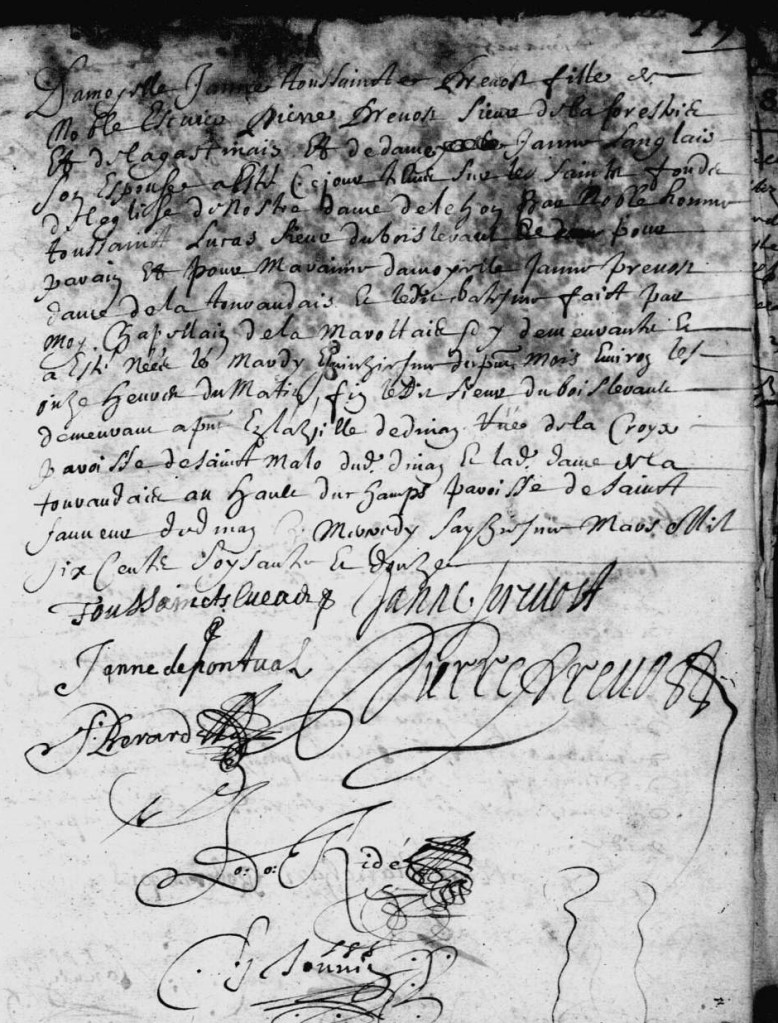 Damoyselle Janne Toussaincte Prevost fille de
Noble Escuier Pierre Prevost Sieur de la forestrie
Et de lagastinais Et de dame Janne Langlais
son Espouse a esté Ce jour tenue sur les saints fonds
de leglise de Nostre dame de lehon par Noble homme
toussainct Lucas Sieur du bois levant pour
parain Et pour Maraine damoyselle Janne prevost
dame de la touraudais Et ledit batesme faict par
moy Chapellain de la Marottais y demeurante Et
a Esté Née le Mardy quinziesme du pnt Mois Environ les
onze heures du Matin, ledit Sieur du bois levant
demeurant a pnt En la Ville de dinan rue de la Croyx
paroisse de saint Malo dud. dinan Et lad. dame de la
touraudais au hault du champs paroisse de saint
sauveur de dinan Mercredy saysiesme Mars Mil
six Cents soysante Et douze
Toussaincts Lucas Janne prevost
Janne de pontual Pierre Prevost
F. Berard
Do: Ridé